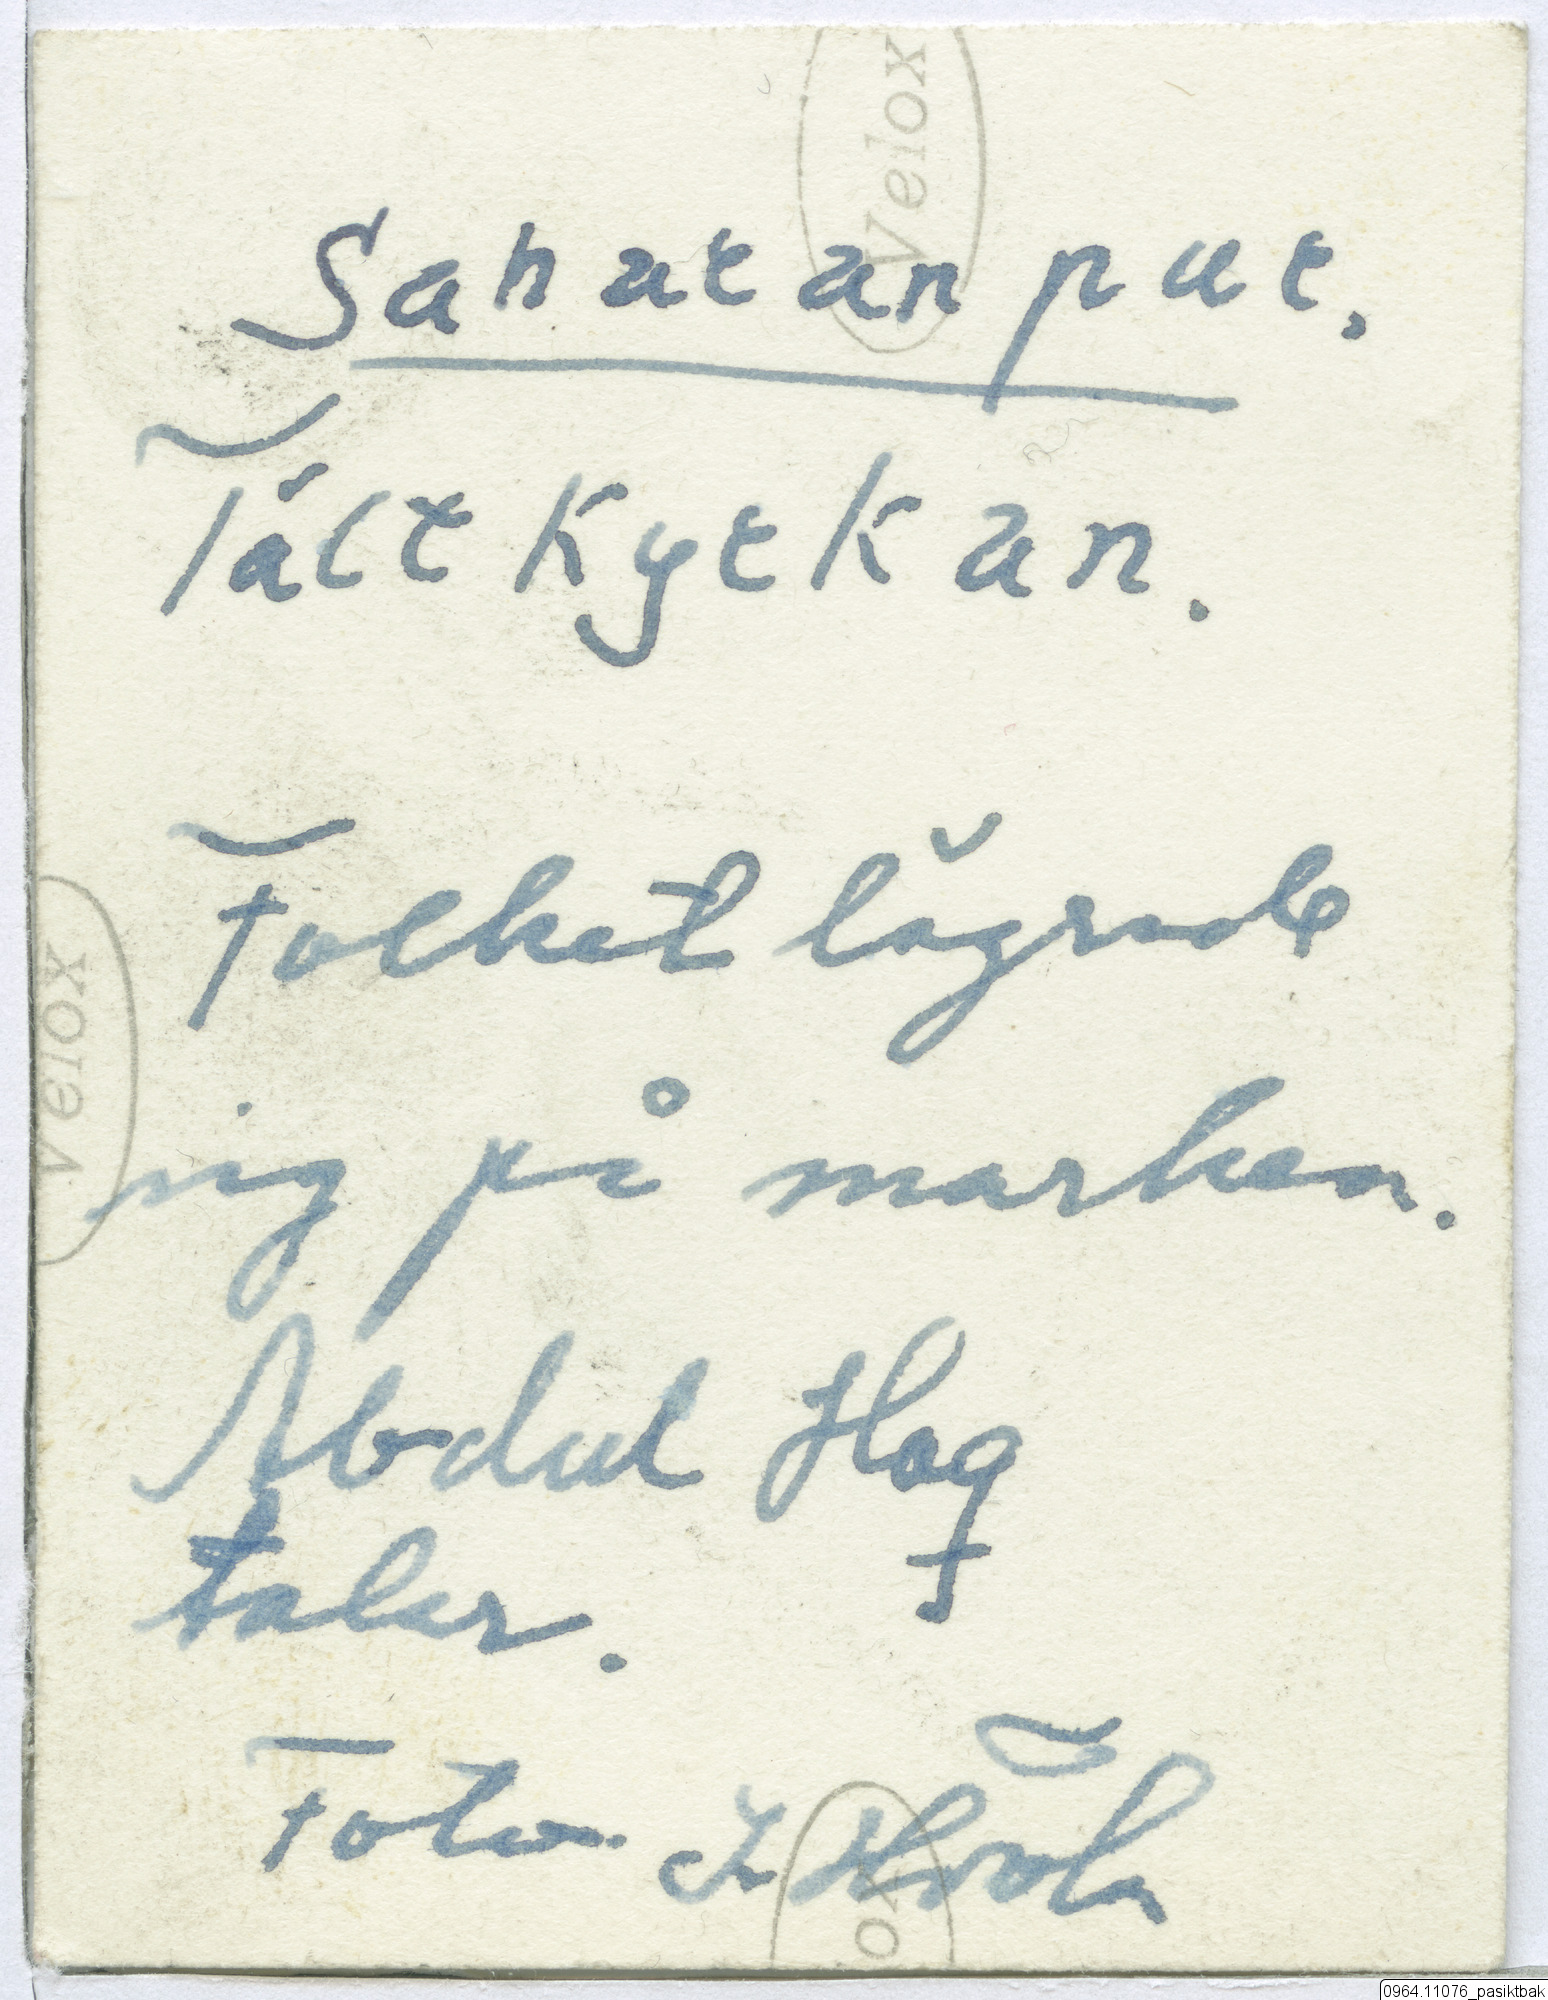 Velox
Saharanpur.
Tältkyrkan.
Folket lägrade
Velox
sig på marken.
Abdul Haq
talar.
Foto
0964.11076_pasiktbak